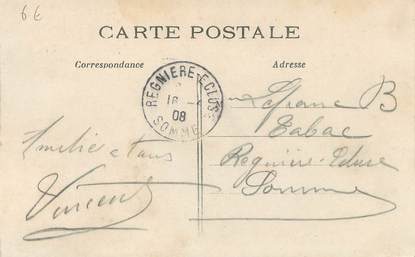 6 €
CARTE POSTALE
Correspondance
Adresse
REGNIÈRE-ECLUSE
16
08
SOMME
Lefranc B
Tabac
Regnière-Ecluse
Somme
Amitié a tous
Vincent